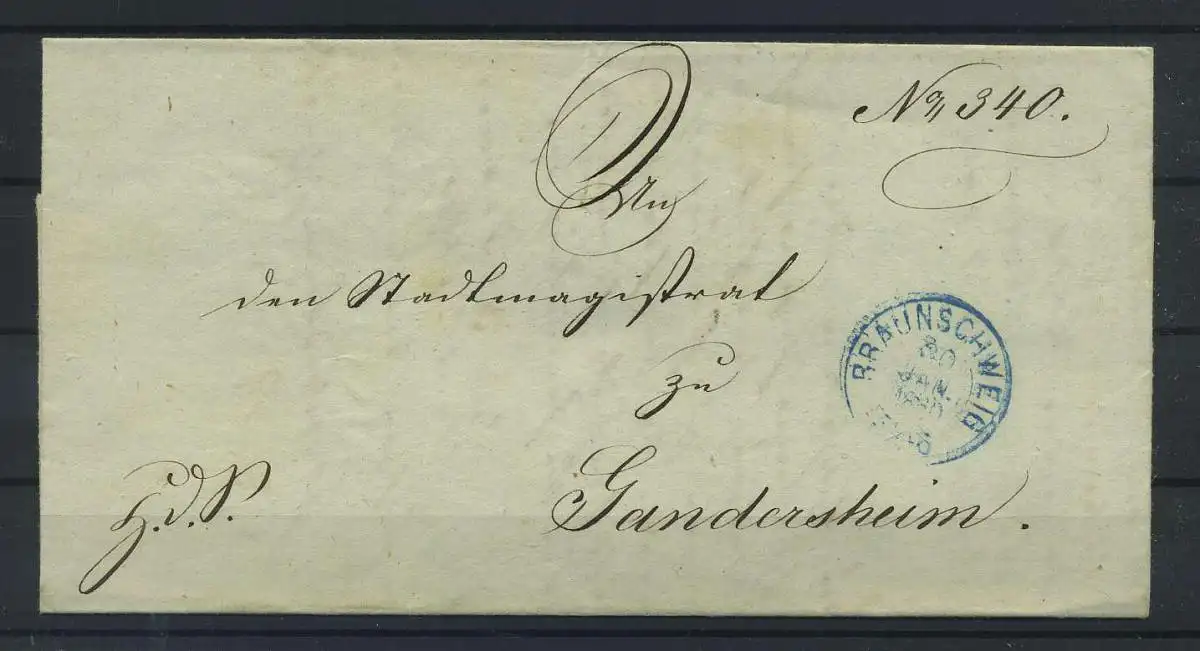 No 340.
An
den Stadtmagistrat
zu
Gandersheim.
H.d.S.
BRAUNSCHWEIG
30
JAN.